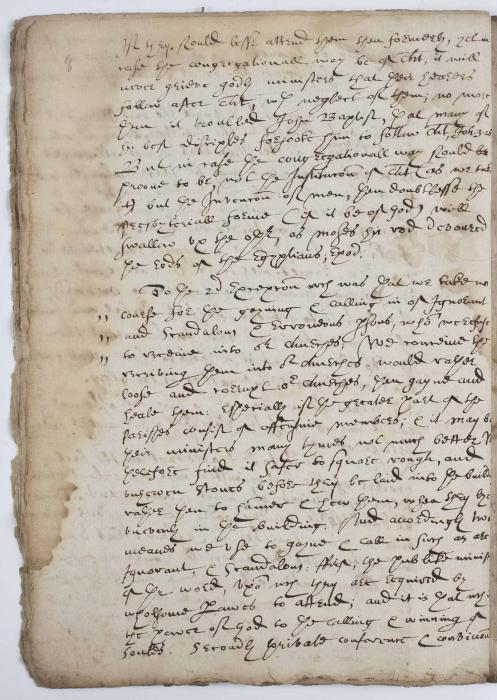 8
If they should lesse attend them then formerly, yet in
case the congregationall way be of Cht, it will
never grieve godly ministers that their hearers
follow after Cht, wth neglect of them; no more
then it troubled John Baptist, that many of
his best disciples forsooke him to follow Cht, Joh:3.
But in case the Congregationall way should be
proove to be, not the Institution of Cht (as we take
it) but the Invention of men, then doubtlesse the
Presbyteriall forme (if it be of God) will
swallow up the other, as Moses his rod devoured
the rods of the Egyptians, Exod.
To the 2d Exception wch was that we take no
" course for the gayning & calling in of Ignorant
" and scandalous & Erroneous psons, whom we refuse
" to receive into or churches. We conceive the
receiving them into or churches would rather
loose and corrupt or churches, then gayne and
heale them: Especially if the greater part of the
Parishes consist of offensive members; & it may be
their ministers many tymes not much better. We
therefore find it safer to square rough, and
unhewen stones before they be laid into the build
rather then to hamer & hew them, when they lye
unevenly in the building. And accordingly two
meanes we use to gayne & call in such as are
Ignorant, & scandalous: ffirst, the publike minis
of the word, upon wch they are required by
wholsome Lawes to attend; and it is that wch is
the power of God to the calling & winning of
soules. Secondly private conference & conviction